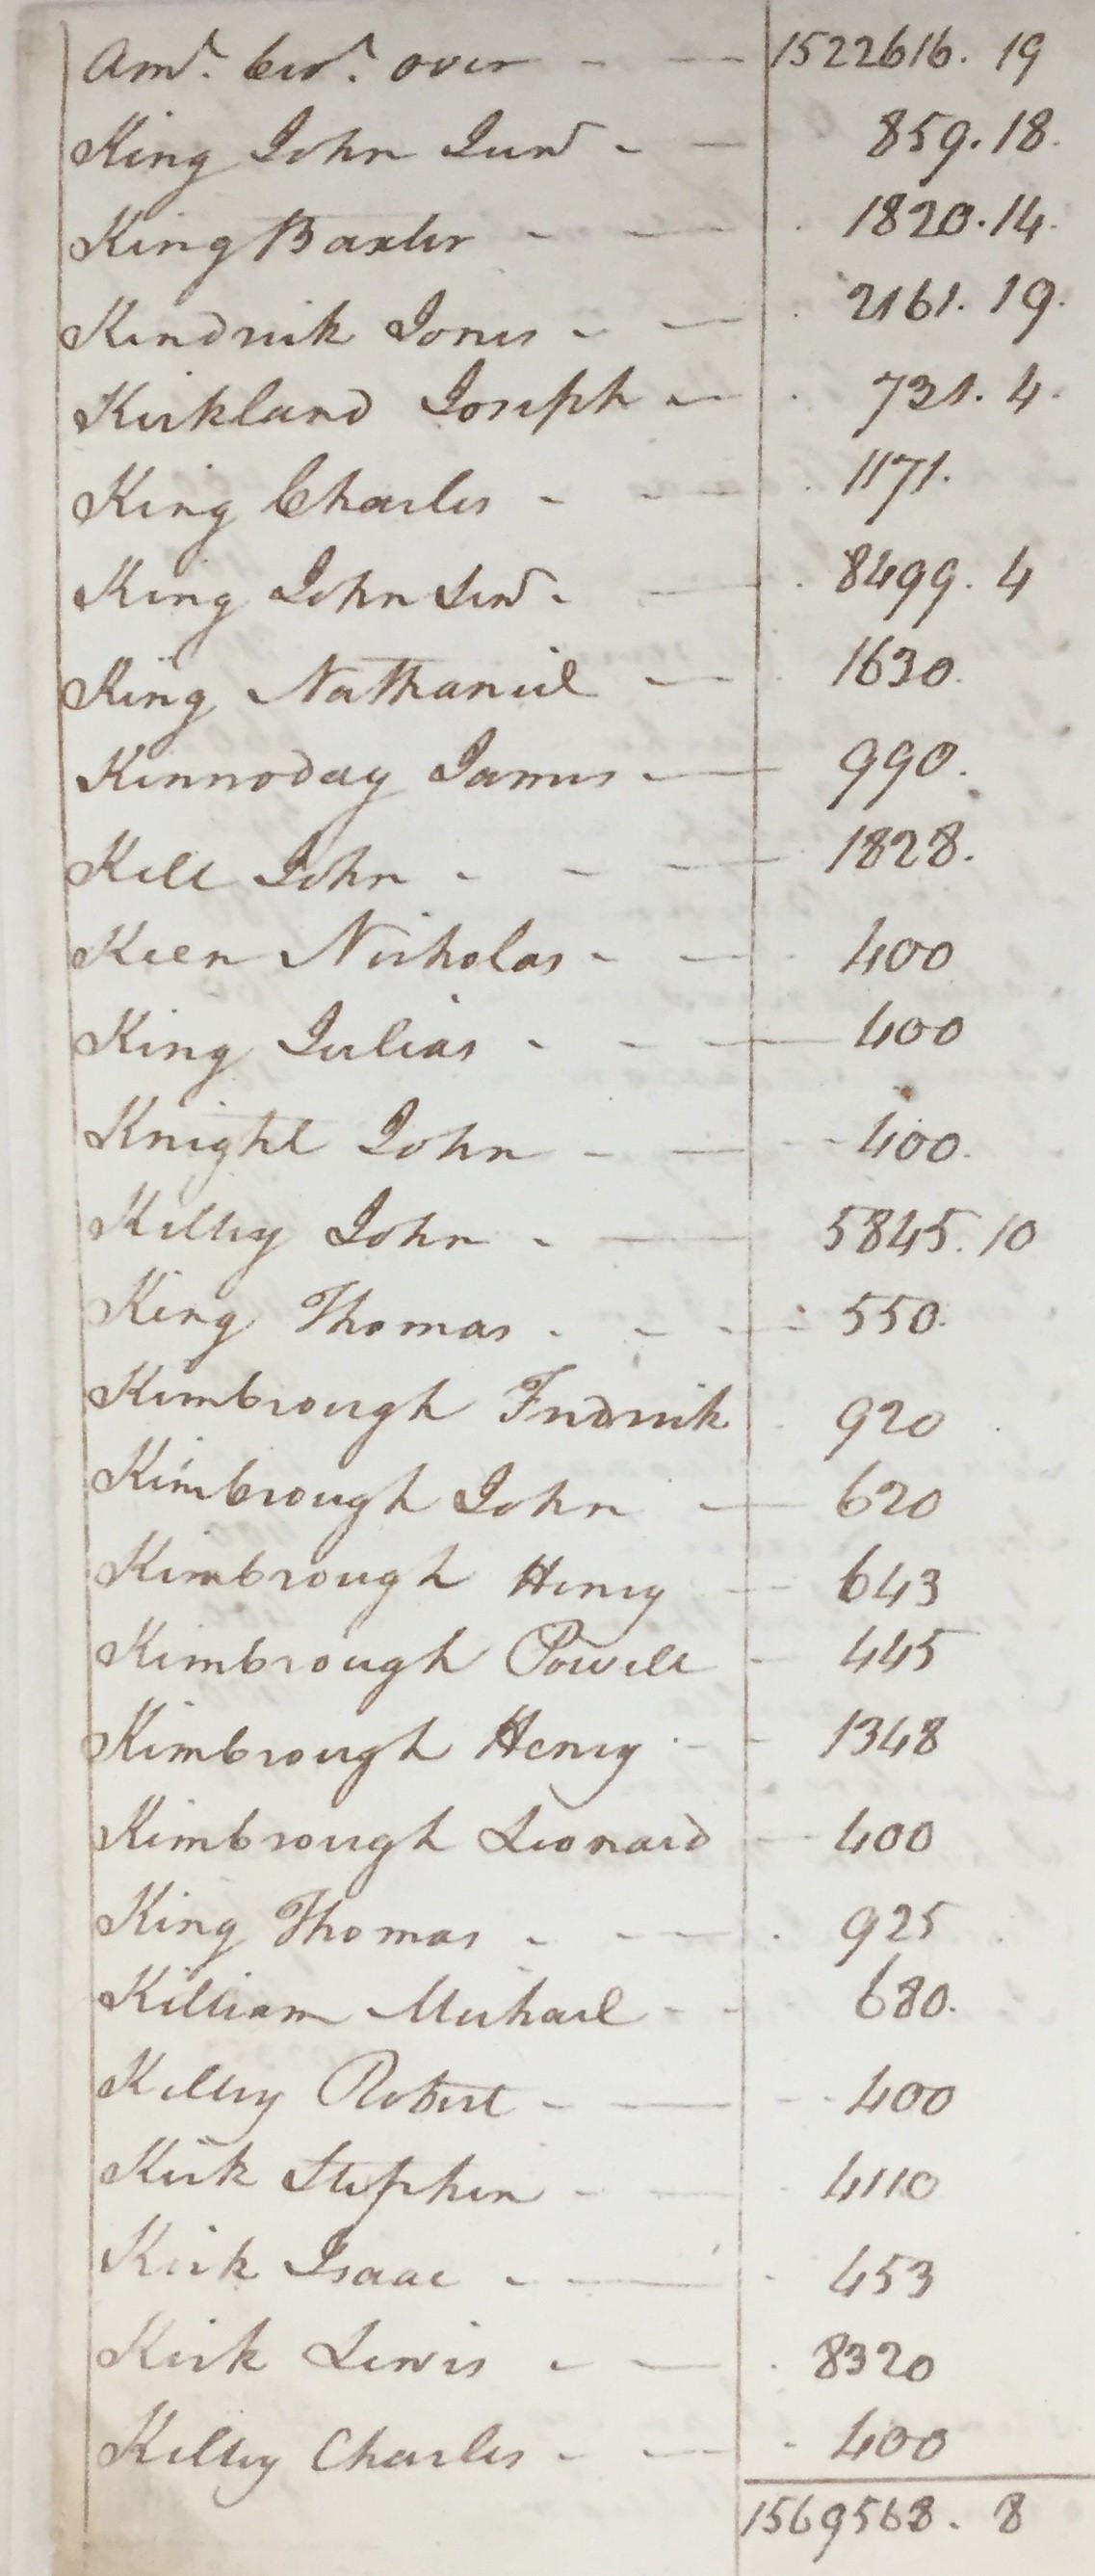 Amt. bro.t over - - 1522616. 19
King John Junr - - 859. 18.
King Baxter - - 1820. 14.
Kendrick Jones - - 2161. 19.
Kirkland Joseph - - 731. 4.
King Charles - - 1171.
King John Senr - - 8499. 4
King Nathaniel - 1630.
Kennoday James - 990.
Kell John - - - 1828.
Keen Nicholas - - 400
King Julias - - - 400
Knight John - - 400.
Kelley John - - 5845. 10
King Thomas - - - 550.
Kimbrough Fredrick 920
Kimbrough John - 620
Kimbrough Henry - 643
Kimbrough Powell - 445
Kimbrough Henry - - 1348
Kimbrough Leonard - 400
King Thomas - - - 925
Killiam Michael - - 680.
Kelley Robert - - 400
Kirk Stephen - - 4110
Kirk Isaac - - 453
Kirk Lewis - - 8320
Kelley Charles - - 400
1569568. 8